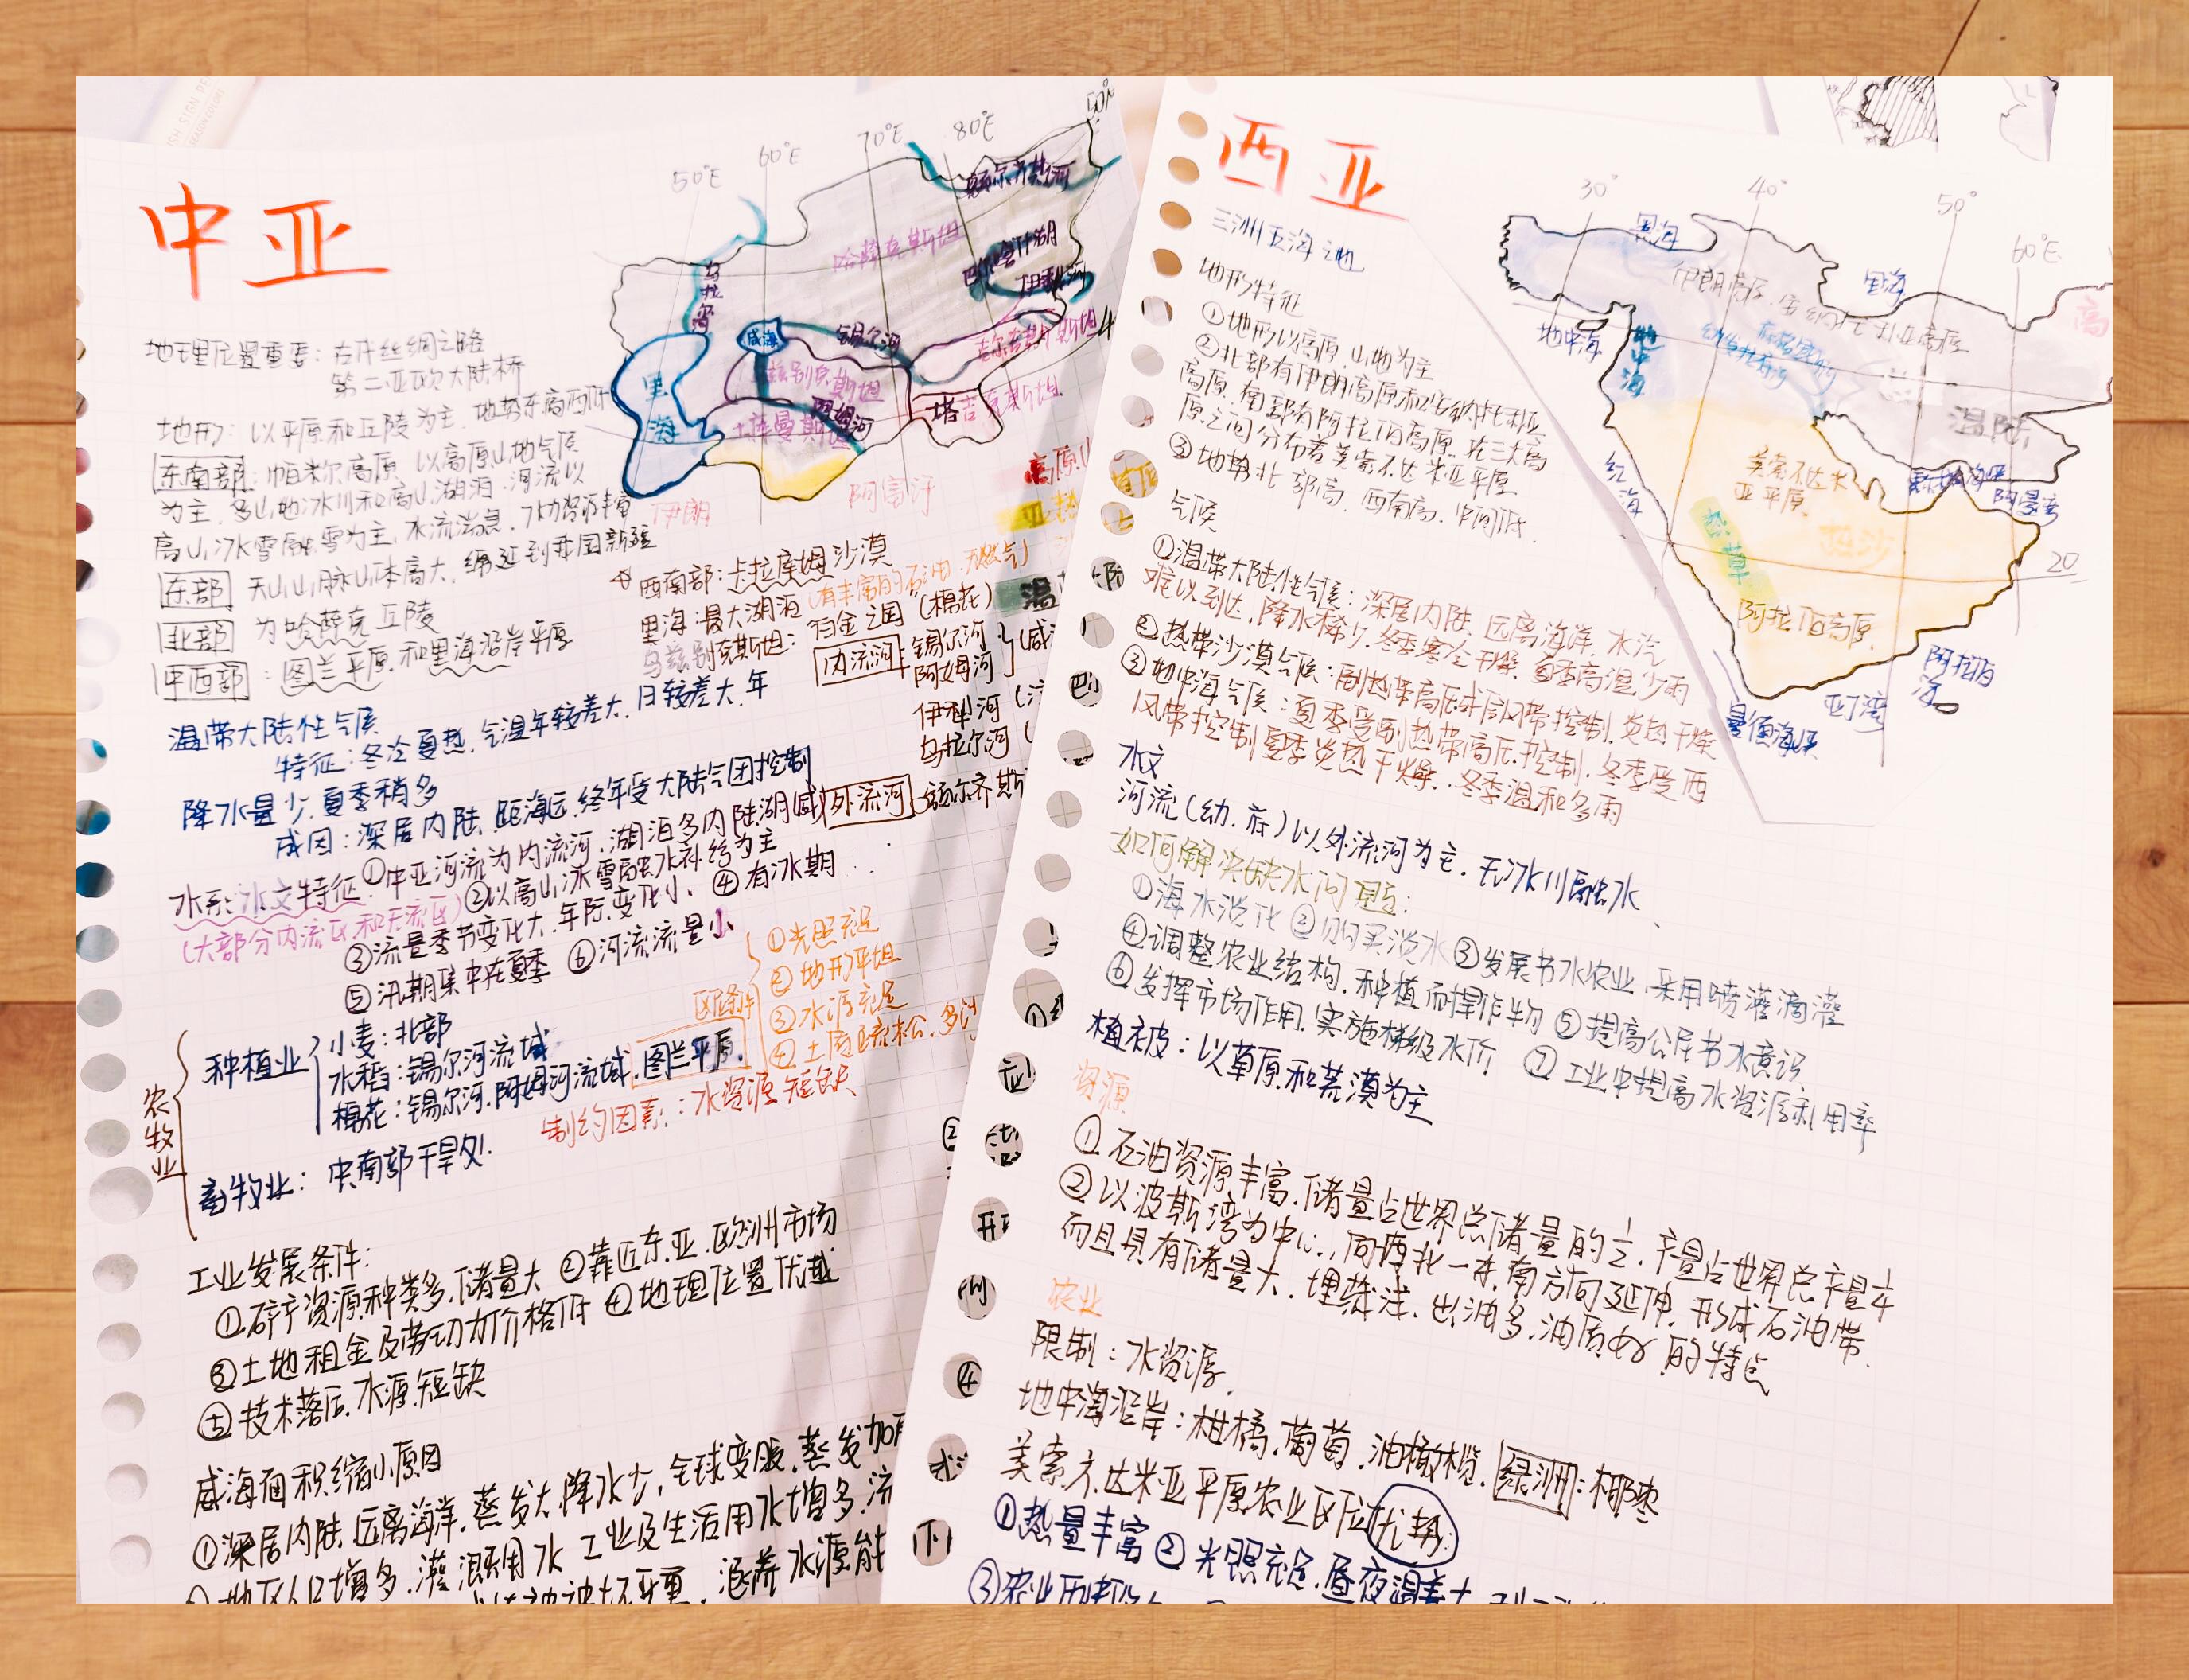 中亚
50°E
60°E
70°E
80°E
50N
额尔齐斯河
哈萨克斯坦
巴尔喀什湖
伊犁河
乌拉尔河
咸海
锡尔河
吉尔吉斯斯坦
里海
乌兹别克斯坦
阿姆河
塔吉克斯坦
土库曼斯坦
伊朗
阿富汗
地理位置重要：古代丝绸之路
第二亚欧大陆桥
地形：以平原和丘陵为主，地势东高西低
东南部：帕米尔高原，以高原山地气候
为主，多山地冰川和高山湖泊，河流以
高山冰雪融雪为主，水流湍急，水力资源丰富
东部 天山山脉山体高大，绵延到我国新疆
北部 为哈萨克丘陵
中西部：图兰平原和里海沿岸平原
西南部：卡拉库姆沙漠
里海：最大湖泊（有丰富的石油、天然气）
乌兹别克斯坦：“白金之国”（棉花）
内流河：锡尔河
阿姆河
伊犁河
乌拉尔河
外流河：额尔齐斯
温带大陆性气候
特征：冬冷夏热，气温年较差大，日较差大，年
降水量少，夏季稍多
成因：深居内陆，距海远，终年受大陆气团控制
水系水文特征①中亚河流为内流河，湖泊多内陆湖（咸）
（大部分内流区和无流区）②以高山冰雪融水补给为主
③流量季节变化大，年际变化小 ④有冰期
⑤汛期集中在夏季 ⑥河流流量小
农牧业
种植业
小麦：北部
水稻：锡尔河流域
棉花：锡尔河、阿姆河流域，图兰平原
区位条件
①光照充足
②地形平坦
③水源充足
④土质疏松，多
制约因素：水资源短缺
畜牧业：中南部干旱处
工业发展条件：
①矿产资源种类多，储量大 ②靠近东亚、欧洲市场
③土地租金及劳动力价格低 ④地理位置优越
⑤技术落后，水源短缺
咸海面积缩小原因
①深居内陆，远离海洋，蒸发大，降水少，全球变暖，蒸发加
地区人口增多，灌溉用水、工业及生活用水增多，流
涵养水源能
西亚
30°
40°
50°
60°E
20
黑海
里海
伊朗高原
地中海
地中海
红海
美索不达米
亚平原
热草
热沙
温陆
阿拉伯高原
阿曼湾
阿拉伯
海
亚丁湾
曼德海峡
三洲五海之地
地形特征
①地形以高原、山地为主
②北部有伊朗高原和安纳托利亚
高原，南部有阿拉伯高原，在三大高
原之间分布着美索不达米亚平原
③地势北部高，西南高，中间低
气候
①温带大陆性气候：深居内陆，远离海洋，水汽
难以到达，降水稀少，冬季寒冷干燥，夏季高温少雨
②热带沙漠气候：副热带高压或信风带控制，炎热干燥
③地中海气候：夏季受副热带高压控制，冬季受西
风带控制，夏季炎热干燥，冬季温和多雨
水文
河流（幼、底）以外流河为主，无冰川融水
如何解决缺水问题：
①海水淡化 ②购买淡水 ③发展节水农业，采用喷灌滴灌
④调整农业结构，种植耐旱作物 ⑤提高公民节水意识
⑥发挥市场作用，实施梯级水价 ⑦工业中提高水资源利用率
植被：以草原和荒漠为主
资源
①石油资源丰富，储量占世界总储量的½，产量占世界总产量¼
②以波斯湾为中心，向西北—东南方向延伸，形成石油带
而且具有储量大，埋藏浅，出油多，油质好的特点
农业
限制：水资源
地中海沿岸：柑橘、葡萄、油橄榄，绿洲：椰枣
美索不达米亚平原农业区位优势：
①热量丰富 ②光照充足，昼夜温差大